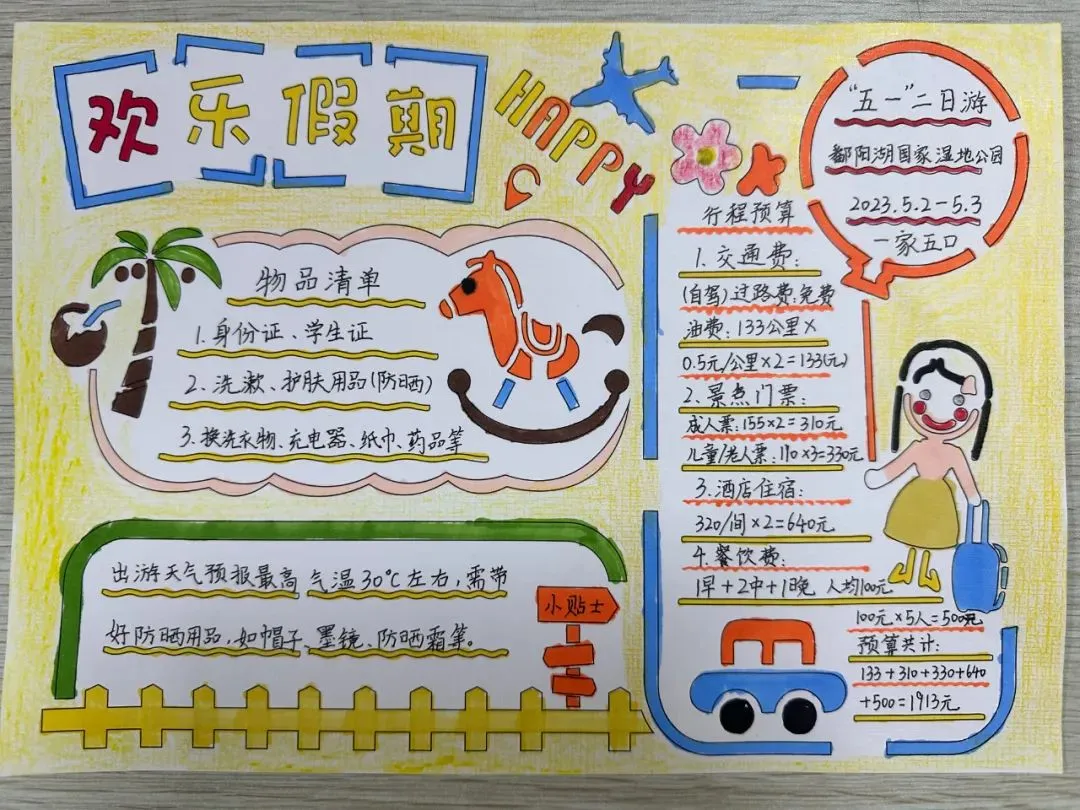 欢乐假期
HAPPY
“五一”二日游
鄱阳湖国家湿地公园
2023.5.2-5.3
一家五口
物品清单
1.身份证、学生证
2.洗漱、护肤用品(防晒)
3.换洗衣物、充电器、纸巾、药品等
出游天气预报最高气温30℃左右,需带
好防晒用品,如帽子、墨镜、防晒霜等。
小贴士
行程预算
1.交通费:
(自驾)过路费:免费
油费:133公里×
0.5元/公里×2=133(元)
2.景点门票:
成人票:155×2=310元
儿童/老人票:110×3=330元
3.酒店住宿:
320/间×2=640元
4.餐饮费:
1早+2中+1晚 人均100元
100元×5人=500元
预算共计:
133+310+330+640
+500=1913元